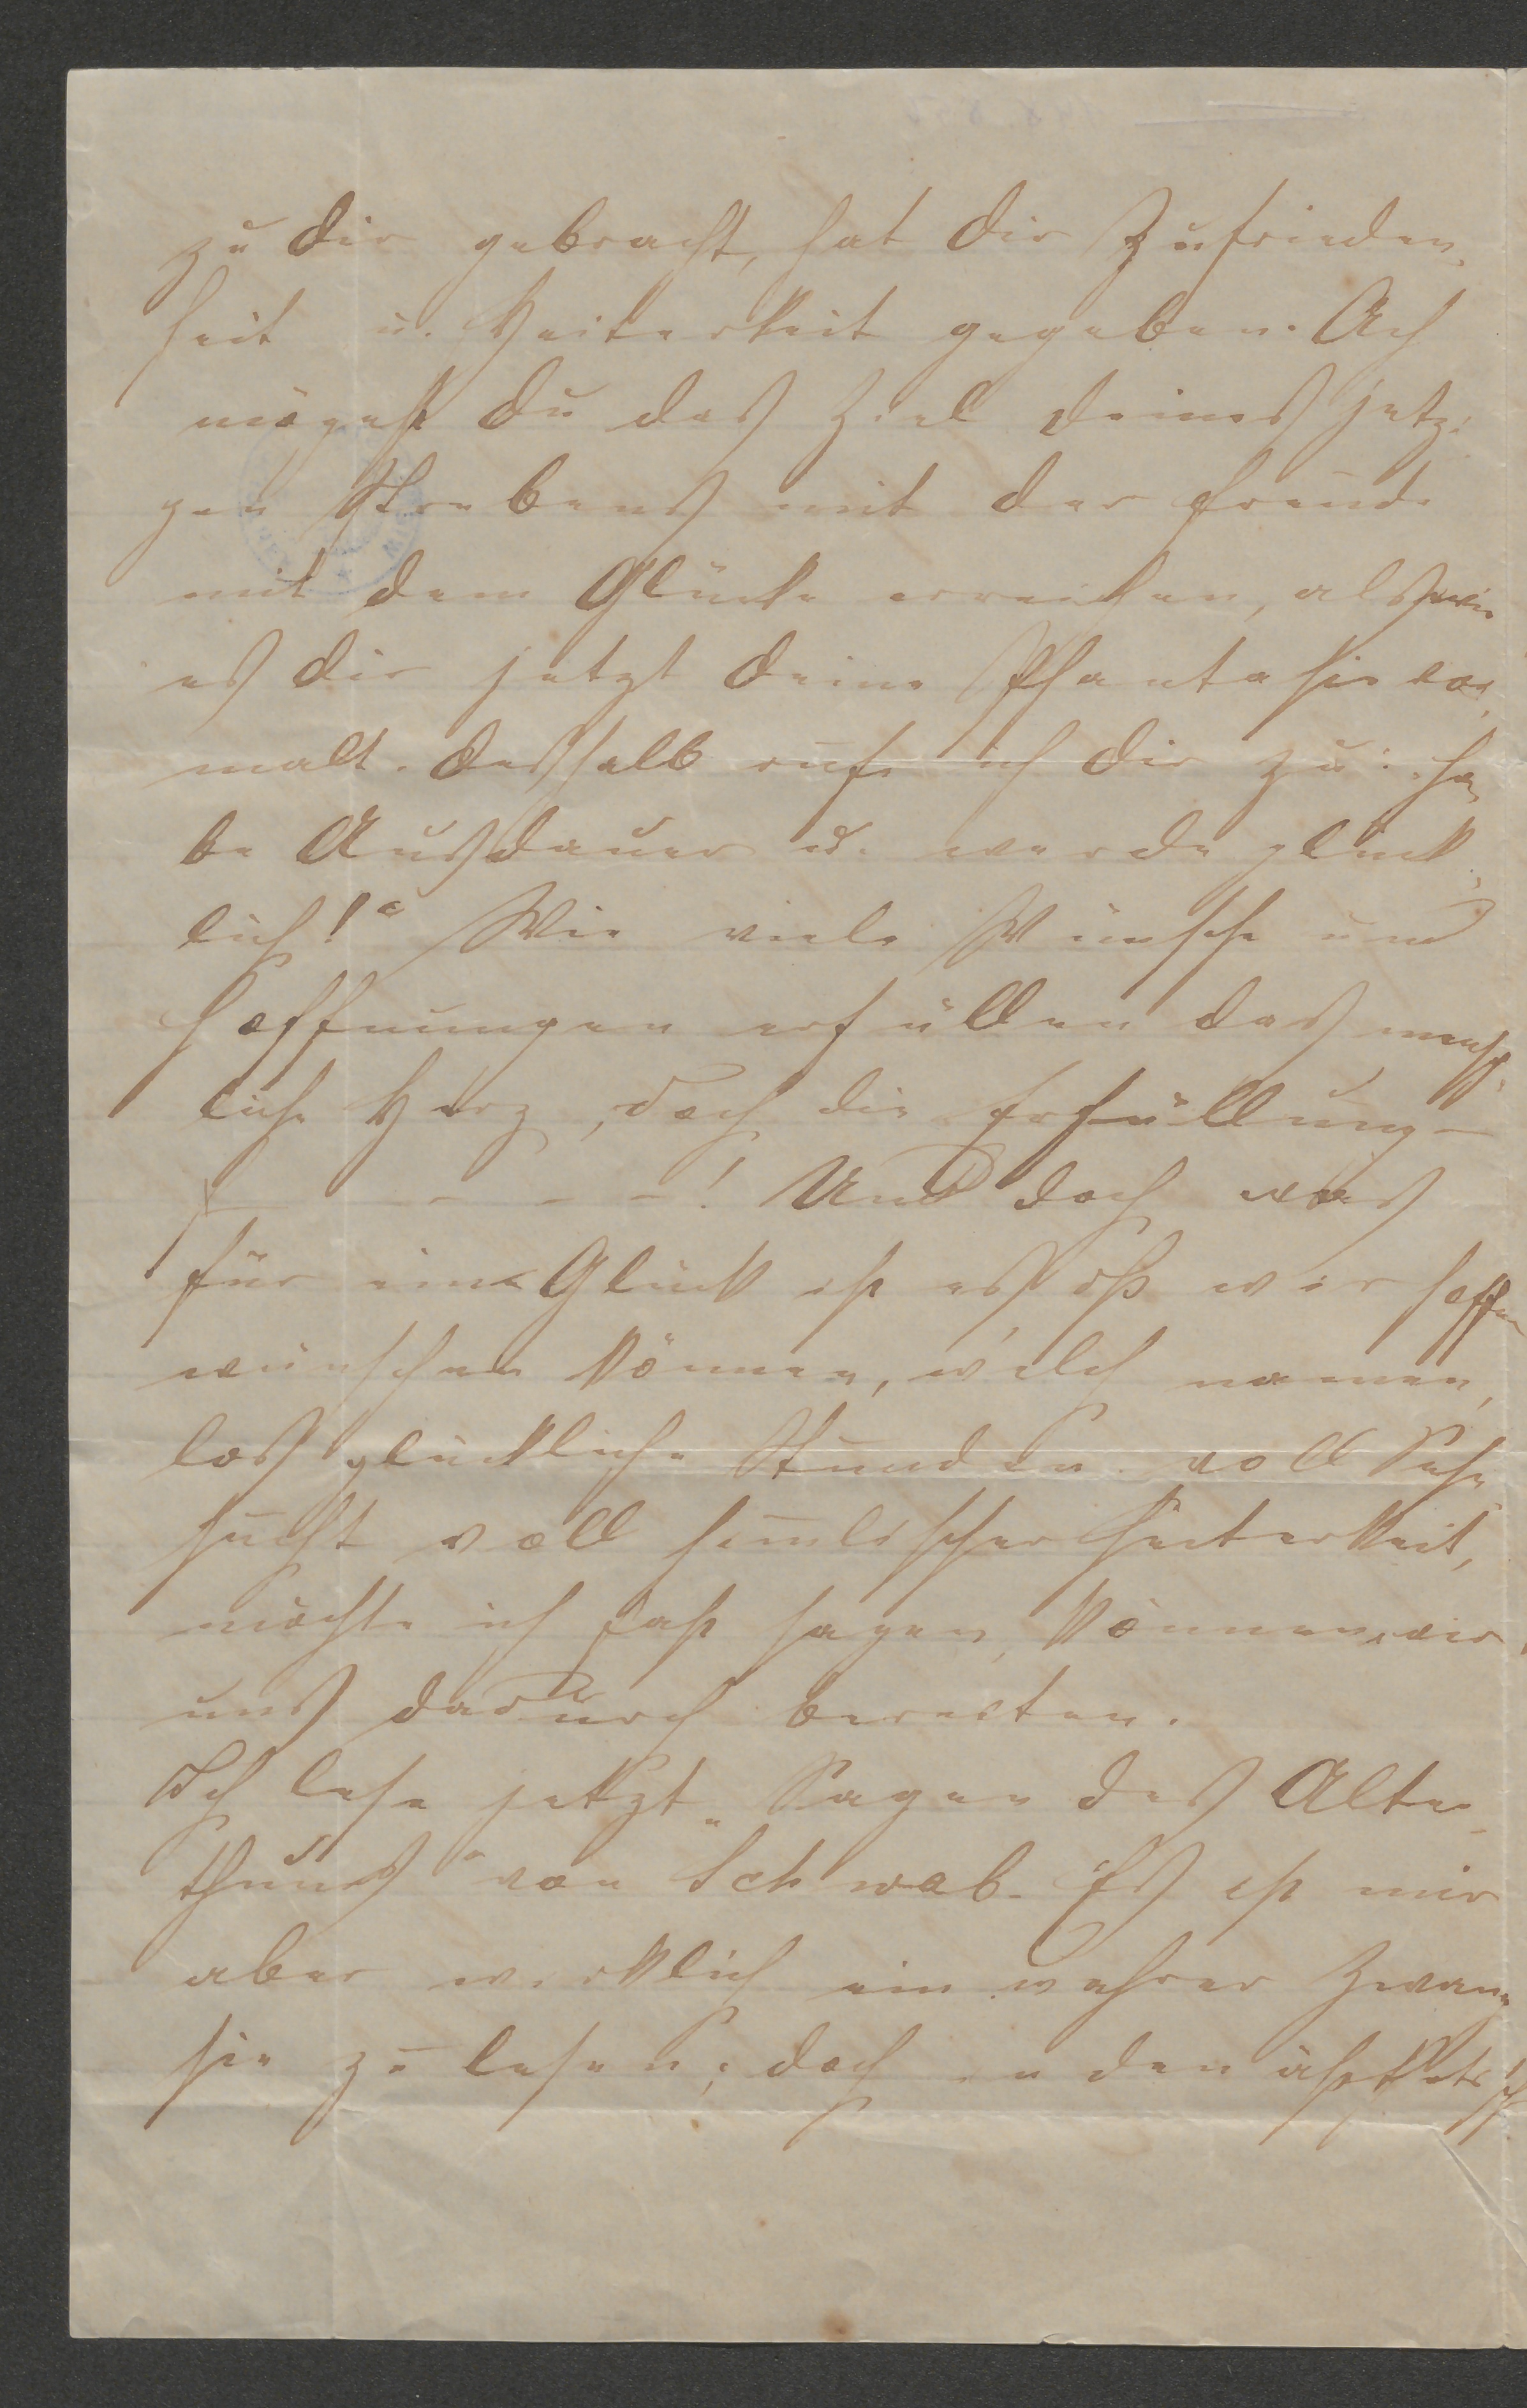 zu dir gebracht, hat dir Zufrieden-
heit u. Heiterkeit gegeben. Ach
mögest du das Ziel deines jetzi-
gen Strebens mit der Freude
mit dem Glücke erreichen, als wie
es dir jetzt deine Phantasie vor-
malt. Desshalb rufe ich dir zu: „ha-
be Ausdauer u. werde glück-
lich!“ Wie viele Wünsche und
Hoffnungen erfüllen das mensch-
liche Herz, doch die Erfüllung –
– – – – –! Und doch was
für ein Glück ist es daß wir hoffen
wünschen können, welch namen-
los glückliche Stunden voll Sehn-
sucht voll himlischer Heiterkeit,
möchte ich fast sagen, können wir
uns dadurch bereiten.
Ich lese jetzt „Sagen des Alter-
thums“ von Schwab. Es ist mir
aber wirklich ein wahrer Zwang
sie zu lesen; doch in den ästhetisch